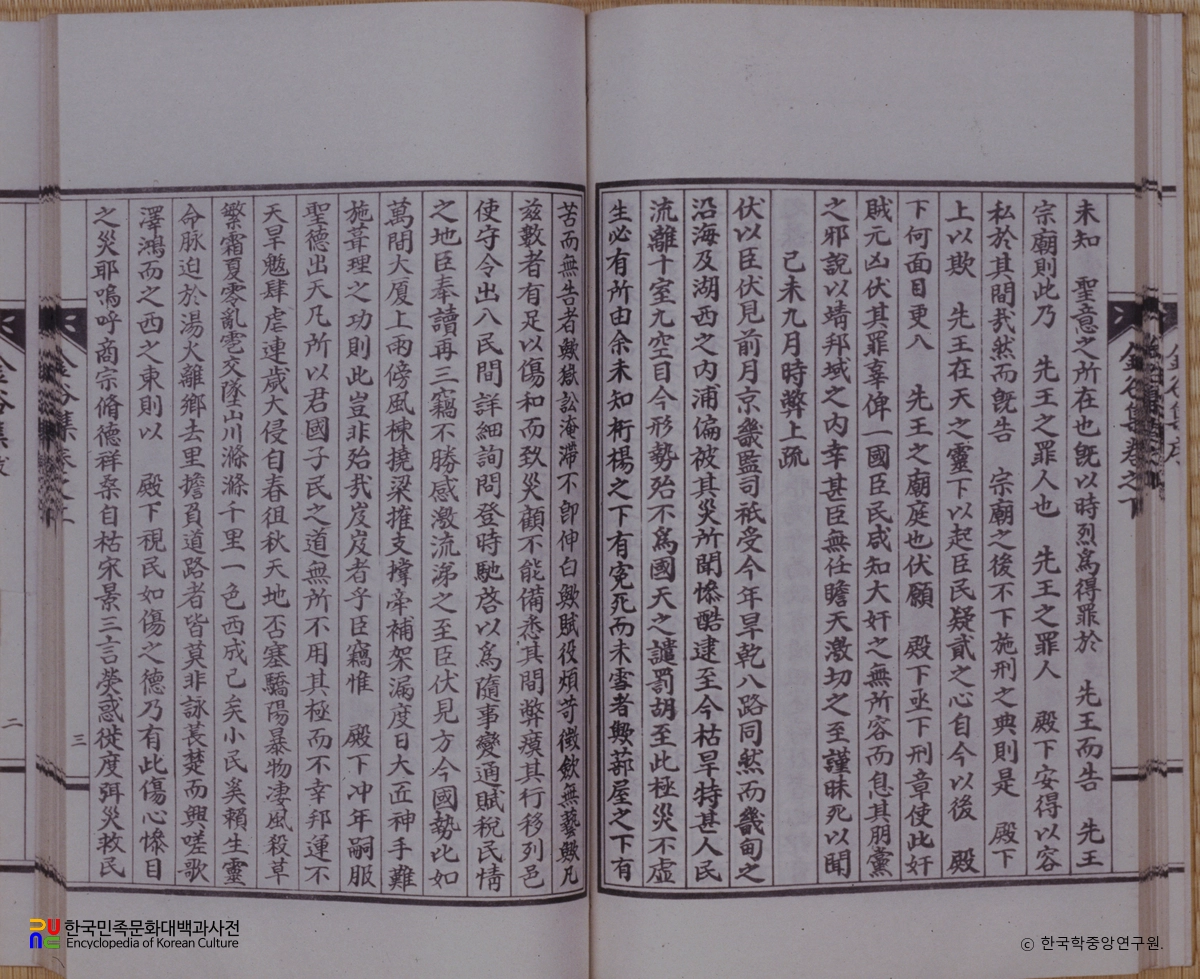 未知 聖意之所在也旣以時烈爲得罪於 先王而告 先王
宗廟則此乃 先王之罪人也 先王之罪人 殿下安得以容
私於其間哉然而旣告 宗廟之後不下施刑之典則是 殿下
上以欺 先王在天之靈下以起臣民疑貳之心自今以後 殿
下何面目更入 先王之廟庭也伏願 殿下亟下刑章使此奸
賊元凶伏其罪辜俾一國臣民咸知大奸之無所容而息其朋黨
之邪說以靖邦域之內幸甚臣無任瞻天激切之至謹昧死以聞
己未九月時弊上疏
伏以臣伏見前月京畿監司祇受今年旱乾八路同然而畿甸之
沿海及湖西之內浦偏被其災所聞慘酷逮至今枯旱特甚人民
流離十室九空目今形勢殆不爲國天之譴罰胡至此極災不虛
生必有所由余未知桁楊之下有寃死而未雪者歟蔀屋之下有
苦而無告者歟獄訟淹滯不卽伸白歟賦役煩苛徵斂無藝歟凡
玆數者有足以傷和而致災顧不能備悉其間弊瘼其行移列邑
使守令出入民間詳細詢問登時馳啓以爲隨事變通賦稅民情
之地臣奉讀再三竊不勝感激流涕之至臣伏見方今國勢比如
萬間大厦上雨傍風棟撓梁摧支撑牽補架漏度日大匠神手難
施葺理之功則此豈非殆哉岌岌者乎臣竊惟 殿下冲年嗣服
聖德出天凡所以君國子民之道無所不用其極而不幸邦運不
天旱魃肆虐連歲大侵自春徂秋天地否塞驕陽暴物凄風殺草
繁霜夏零亂雹交墜山川滌滌千里一色西成已矣小民奚賴生靈
命脉迫於湯火離鄕去里擔負道路者皆莫非詠萇楚而興嗟歌
澤鴻而之西之東則以 殿下視民如傷之德乃有此傷心慘目
之災耶嗚呼商宗脩德祥桑自枯宋景三言熒惑徙度弭災救民
三
二
한국민족문화대백과사전
Encyclopedia of Korean Culture
ⓒ 한국학중앙연구원.